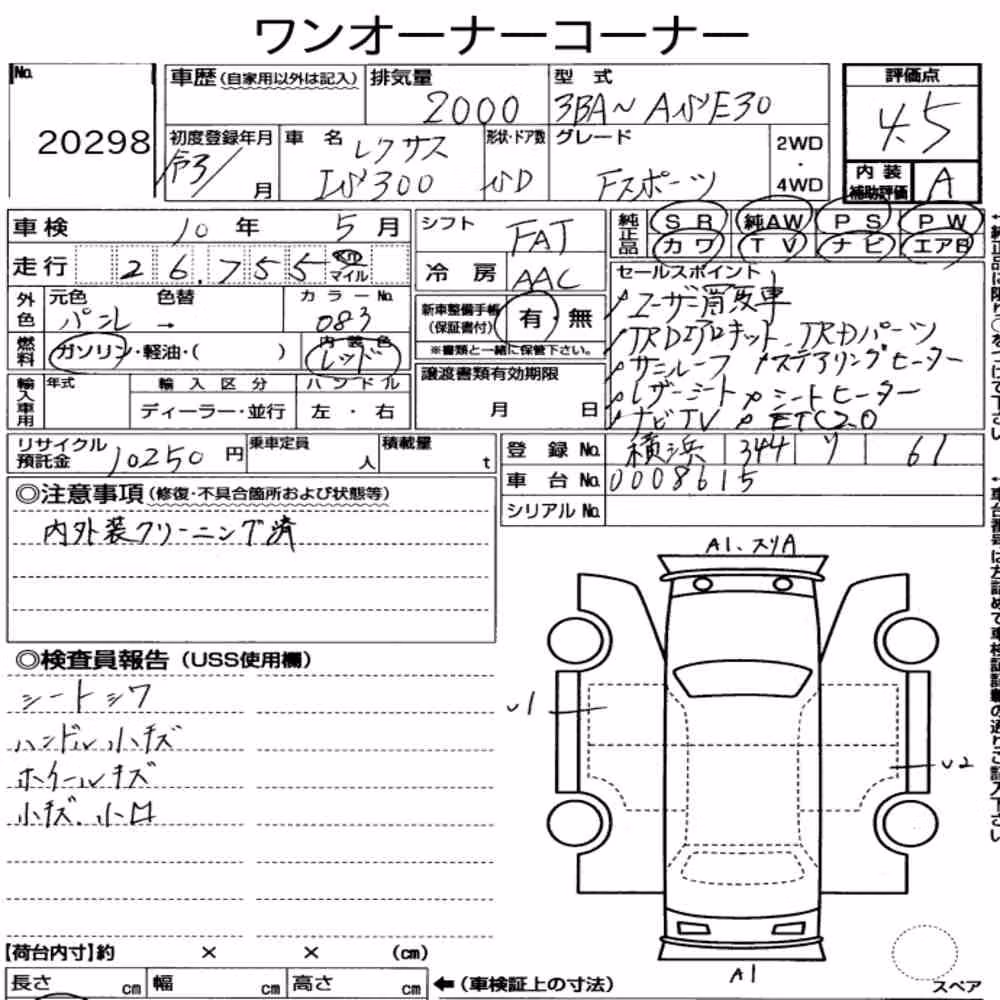 ワンオーナーコーナー
No. 20298
車歴(自家用以外は記入)
排気量 2000
型式 3BA~ASE30
評価点 4.5
内装補助評価 A
初度登録年月 令3/ 月
車名 レクサス IS300
形状・ドア数 SD
グレード Fスポーツ
2WD・4WD
車検 10年 5月
走行 26,755 km マイル
シフト FAT
冷房 AAC
純正品 SR 純AW PS PW
カワ TV ナビ エアB
外色 元色 パール 色替 → カラーNo. 083
燃料 ガソリン・軽油・( ) 内装色 レッド
新車整備手帳(保証書付) 有・無
※書類と一緒に保管下さい。
セールスポイント
ユーザー買取車
TRDエアロキット、TRDパーツ
サンルーフ ステアリングヒーター
レザーシート シートヒーター
ナビTV ETC2.0
輸入車用 年式 輸入区分 ハンドル
ディーラー・並行 左・右
譲渡書類有効期限
月 日
リサイクル預託金 10250円
乗車定員 人
積載量 t
登録No. 横浜 344 ソ 61
車台No. 0008615
シリアルNo.
◎注意事項(修復・不具合箇所および状態等)
内外装クリーニング済
◎検査員報告(USS使用欄)
シートシワ
ハンドル小キズ
ホイールキズ
小キズ、小凹
A1、スリA
U1
U2
A1
スペア
【荷台内寸】約 × × (cm)
長さ cm 幅 cm 高さ cm
←(車検証上の寸法)